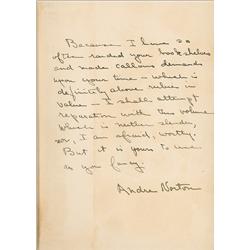 Because I have so
often raided your bookshelves
and made callous demands
upon your time — which is
definitely above rubies in
value — I shall attempt
reparation with this volume
which is neither slender,
nor, I am afraid, worthy.
But it is yours to use
as you fancy.
Andre Norton